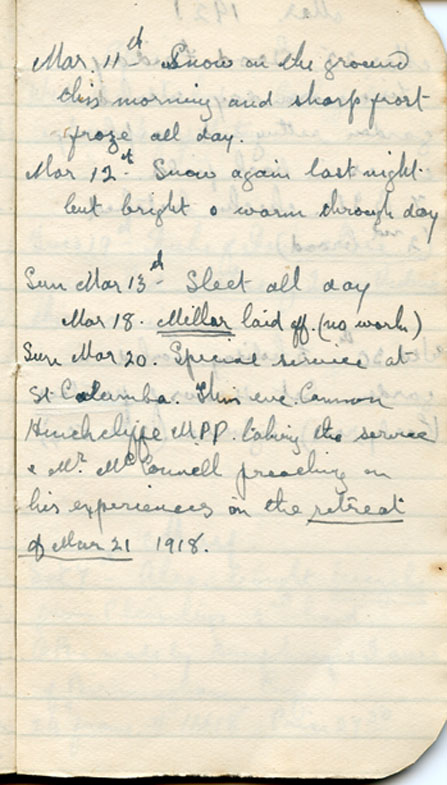 Mar. 11th Snow on the ground
this morning and sharp frost
froze all day.
Mar 12th Snow again last night
but bright & warm through day
Sun Mar 13th Sleet all day
Mar 18. Millar laid off. (no work)
Sun Mar 20. Special service at
St. Columba. This eve. Cannon
Hinchcliffe M.P.P. taking the service
& Mr. McConnell preaching on
his experiences on the retreat
of Mar 21 1918.